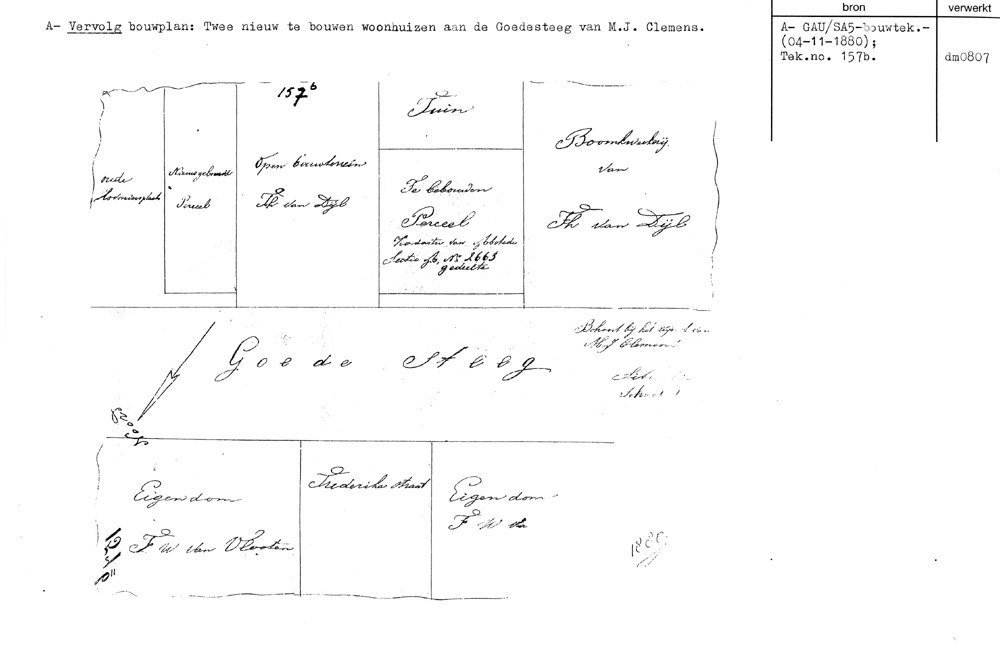 A- Vervolg bouwplan: Twee nieuw te bouwen woonhuizen aan de Goedesteeg van M.J. Clemens.
bron
verwerkt
A- GAU/SA5-bouwtek.-
(04-11-1880);
Tek.no. 157b.
dm0807
157b
oude
Nieuwgebouwd
Perceel
Open bouwterrein
Th van Dijl
Tuin
Te bebouwen
Perceel
Kadaster van Abstede
Sectie No 2663
gedeelte
Boomkwekerij
van
Th van Dijl
Goede Steeg
Behoort bij het van
M J Clemens
Noord
Eigendom
F W van Vlooten
Frederika straat
Eigendom
F W
1880